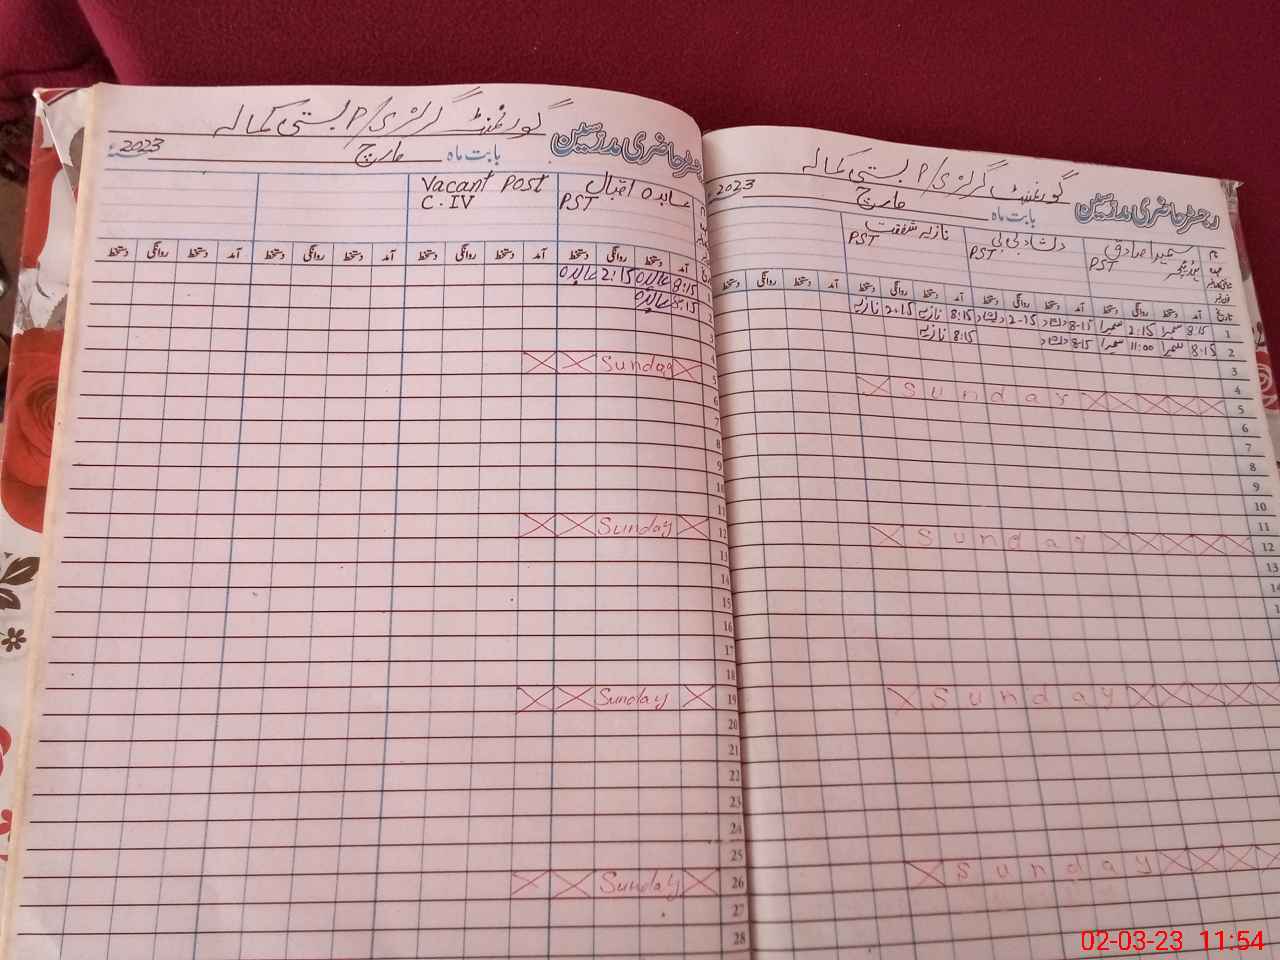 رجسٹر حاضری مدرسین گورنمنٹ گرلز P/S بستی کمالہ
بابت ماہ مارچ 2023
نام
سمیرا صادق
PST
دلشاد بی بی
PST
نازیہ شفقت
PST
تاریخ آمد دستخط روانگی دستخط آمد دستخط روانگی دستخط آمد دستخط روانگی دستخط آمد دستخط روانگی دستخط
1 8:15 سمیرا 2:15 سمیرا 8-15 دلشاد 2-15 دلشاد 8:15 نازیہ 2:15 نازیہ
2 8:15 سمیرا 11:00 سمیرا 8-15 دلشاد 8:15 نازیہ
3
4
5 Sunday
6
7
8
9
10
11
12 Sunday
13
14
Sunday
Sunday
رجسٹر حاضری مدرسین گورنمنٹ گرلز P/S بستی کمالہ
بابت ماہ مارچ 2023
عابدہ اقبال
PST
Vacant Post
C.IV
آمد دستخط روانگی دستخط آمد دستخط روانگی دستخط آمد دستخط روانگی دستخط آمد دستخط روانگی دستخط
1 8:15 عابدہ 2:15 عابدہ
2 8:15 عابدہ
3
4
5 Sunday
6
7
8
9
10
11
12 Sunday
13
14
15
16
17
18
19 Sunday
20
21
22
23
24
25
26 Sunday
27
28
02-03-23 11:54